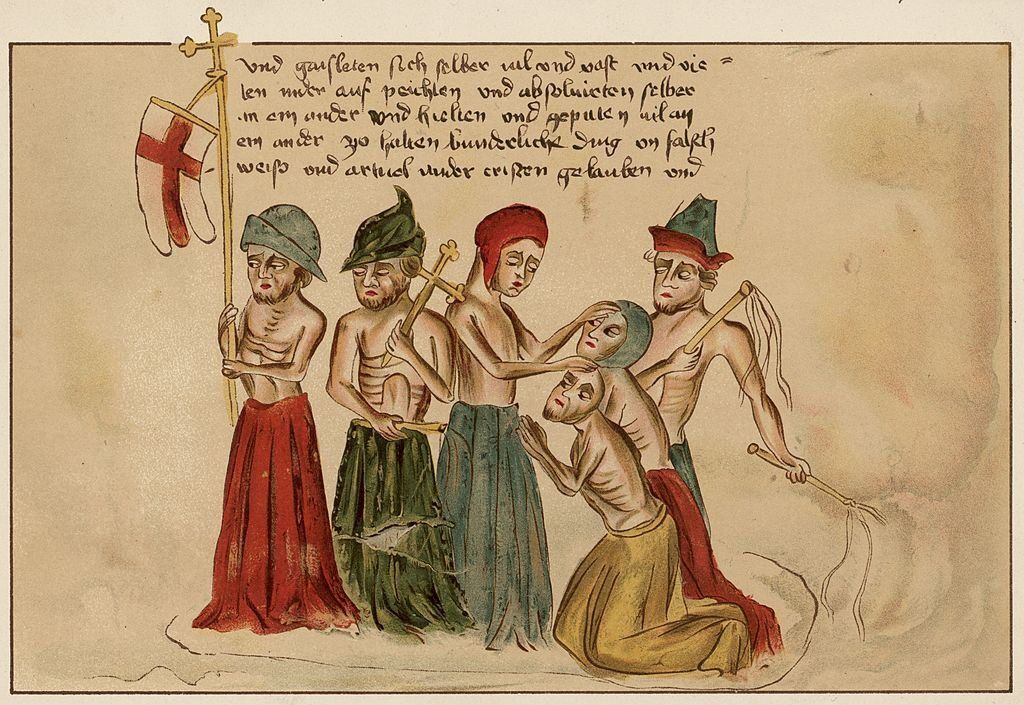 vnd gaisleten sich selber vil vnd vast vnd vie=
len nider auf peichten vnd absoluieten selber
an ein ander vnd hielten vnd geputen vil an
ein ander zo halten bunderliche ding vn falsch
weiss vnd artikel wider cristen gelauben vnd